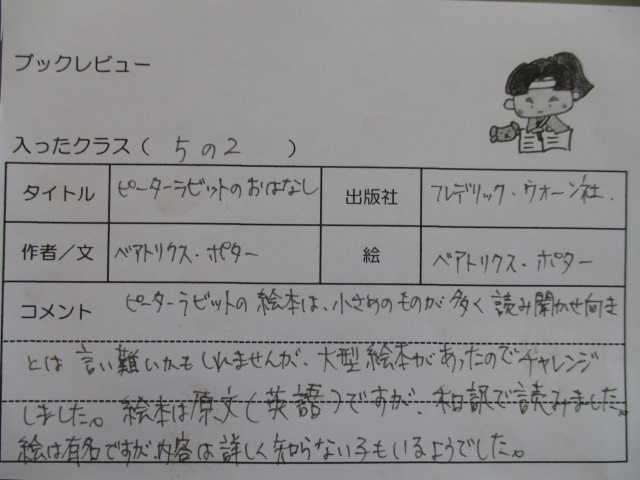 ブックレビュー
入ったクラス（ 5の2 ）
タイトル ピーターラビットのおはなし 出版社 フレデリック・ウォーン社.
作者／文 ベアトリクス・ポター 絵 ベアトリクス・ポター
コメント ピーターラビットの絵本は、小さめのものが多く読み聞かせ向き
とは言い難いかもしれませんが、大型絵本があったのでチャレンジ
しました。絵本は原文(英語)ですが、和訳で読みました。
絵は有名ですが、内容は詳しく知らない子もいるようでした。